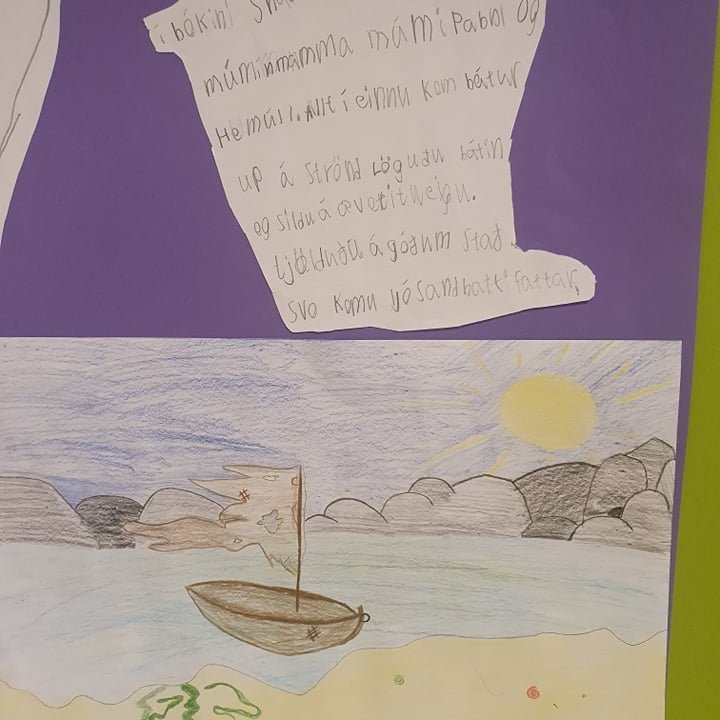 í bókini
múmínmamma múmí Pabbi og
Hemúli. Allt í einnu kom bátur
up á strönd Löguðu bátin
og sildu á ævetitweigu.
tjölduðu á góðum stað
svo komu yósandbatti fattar,